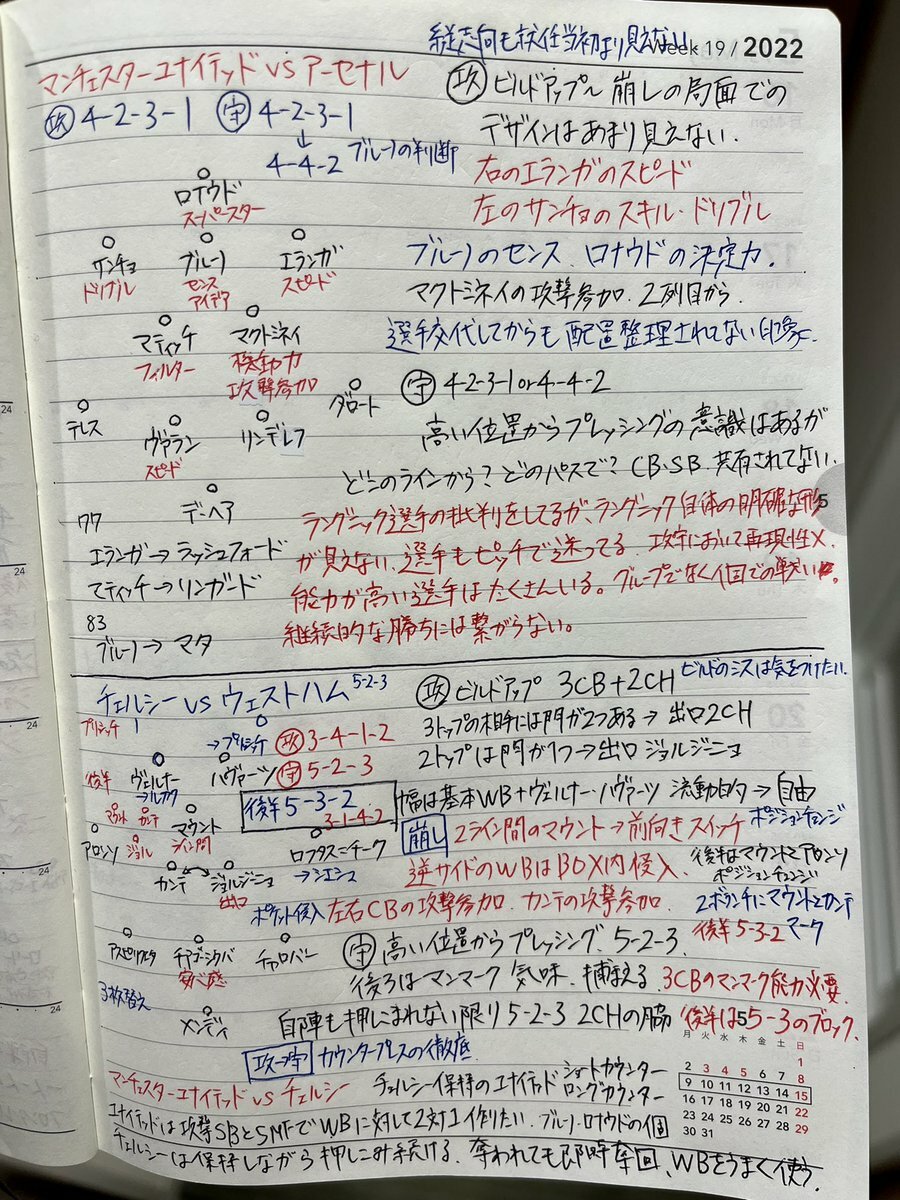 Week 19 / 2022
縦志向も就任当初より見えない
マンチェスターユナイテッド VS アーセナル
攻 4-2-3-1 守 4-2-3-1
↓
4-4-2 ブルーノの判断
ロナウド
スーパースター
サンチョ
ドリブル
ブルーノ
センス
アイデア
エランガ
スピード
マティッチ
フィルター
マクトミネイ
機動力
攻撃参加
テレス
ヴァラン
スピード
リンデレフ
ダロート
デ・ヘア
77
エランガ→ラッシュフォード
マティッチ→リンガード
83
ブルーノ→マタ
攻 ビルドアップ〜崩しの局面での
デザインはあまり見えない.
右のエランガのスピード
左のサンチョのスキル・ドリブル
ブルーノのセンス ロナウドの決定力.
マクトミネイの攻撃参加. 2列目から.
選手交代してからも配置整理されてない印象.
守 4-2-3-1 or 4-4-2
高い位置からプレッシングの意識はあるが
どこのラインから?どのパスで? CB・SB. 共有されてない.
ラングニック選手の批判をしてるが、ラングニック自体の明確な形
が見えない. 選手もピッチで迷ってる. 攻守において再現性×.
能力が高い選手はたくさんいる。グループでなく個での戦い.
継続的な勝ちには繋がらない。
チェルシー VS ウェストハム 5-2-3
プリシッチ
→プリシッチ
攻 3-4-1-2
守 5-2-3
後半
ヴェルナー
→ルカク
ハヴァーツ
後半 5-3-2
3-1-4-2
マウント カンテ
マウント
ライン間
アロンソ
ジョル
ロフタス=チーク
→シエシュ
カンテ
ジョルジーニョ
出口
アスピリクエタ
チアゴ・シウバ
安心感
チャロバー
3枚替え
メンディ
攻 ビルドアップ 3CB+2CH ビルドのミスは気をつけたい.
3トップの相手には門が2つある→出口2CH
2トップは門が1つ→出口 ジョルジーニョ
幅は基本WB+ヴェルナー・ハヴァーツ 流動的→自由
崩し 2ライン間のマウント→前向きスイッチ ポジションチェンジ
逆サイドのWBはBOX内侵入.
後半はマウントとアロンソ
ポジションチェンジ
ポケット侵入 左右CBの攻撃参加. カンテの攻撃参加.
2ボランチにマウントとカンテ
後半5-3-2 マーク
守 高い位置からプレッシング. 5-2-3.
後ろはマンマーク気味. 捕まえる. 3CBのマンマーク能力必要.
自陣も押しこまれない限り5-2-3 2CHの脇 後半は5-3のブロック.
攻→守 カウンタープレスの徹底.
マンチェスターユナイテッド VS チェルシー
チェルシー保持のユナイテッド ショートカウンター
ロングカウンター
ユナイテッドは攻撃SBとSMFでWBに対して2対1作りたい. ブルーノ・ロナウドの個
チェルシーは保持しながら押しこみ続ける. 奪われても即時奪回. WBをうまく使う.
月 火 水 木 金 土 日
1
2 3 4 5 6 7 8
9 10 11 12 13 14 15
16 17 18 19 20 21 22
23 24 25 26 27 28 29
30 31
5
5
24
24
24
24
24